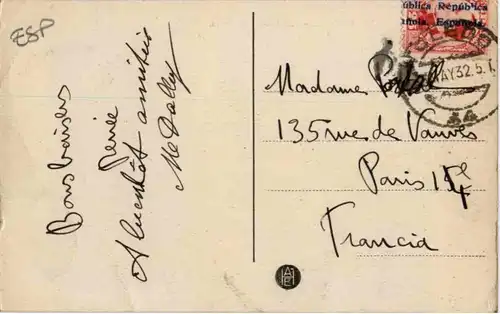 ESP
Bons baisers
Renée
A bientôt amitiés
M Dolley
ública República
ñola. Española.
MAY 32.5.T.
44
Madame
135 rue de Vanves
Paris 14e
Francia